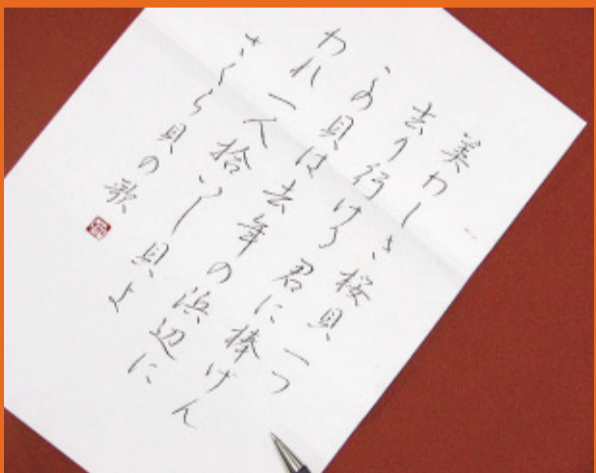 美わしき桜貝一つ
去り行ける君に捧げん
この貝は去年の浜辺に
われ一人拾いし貝よ
さくら貝の歌